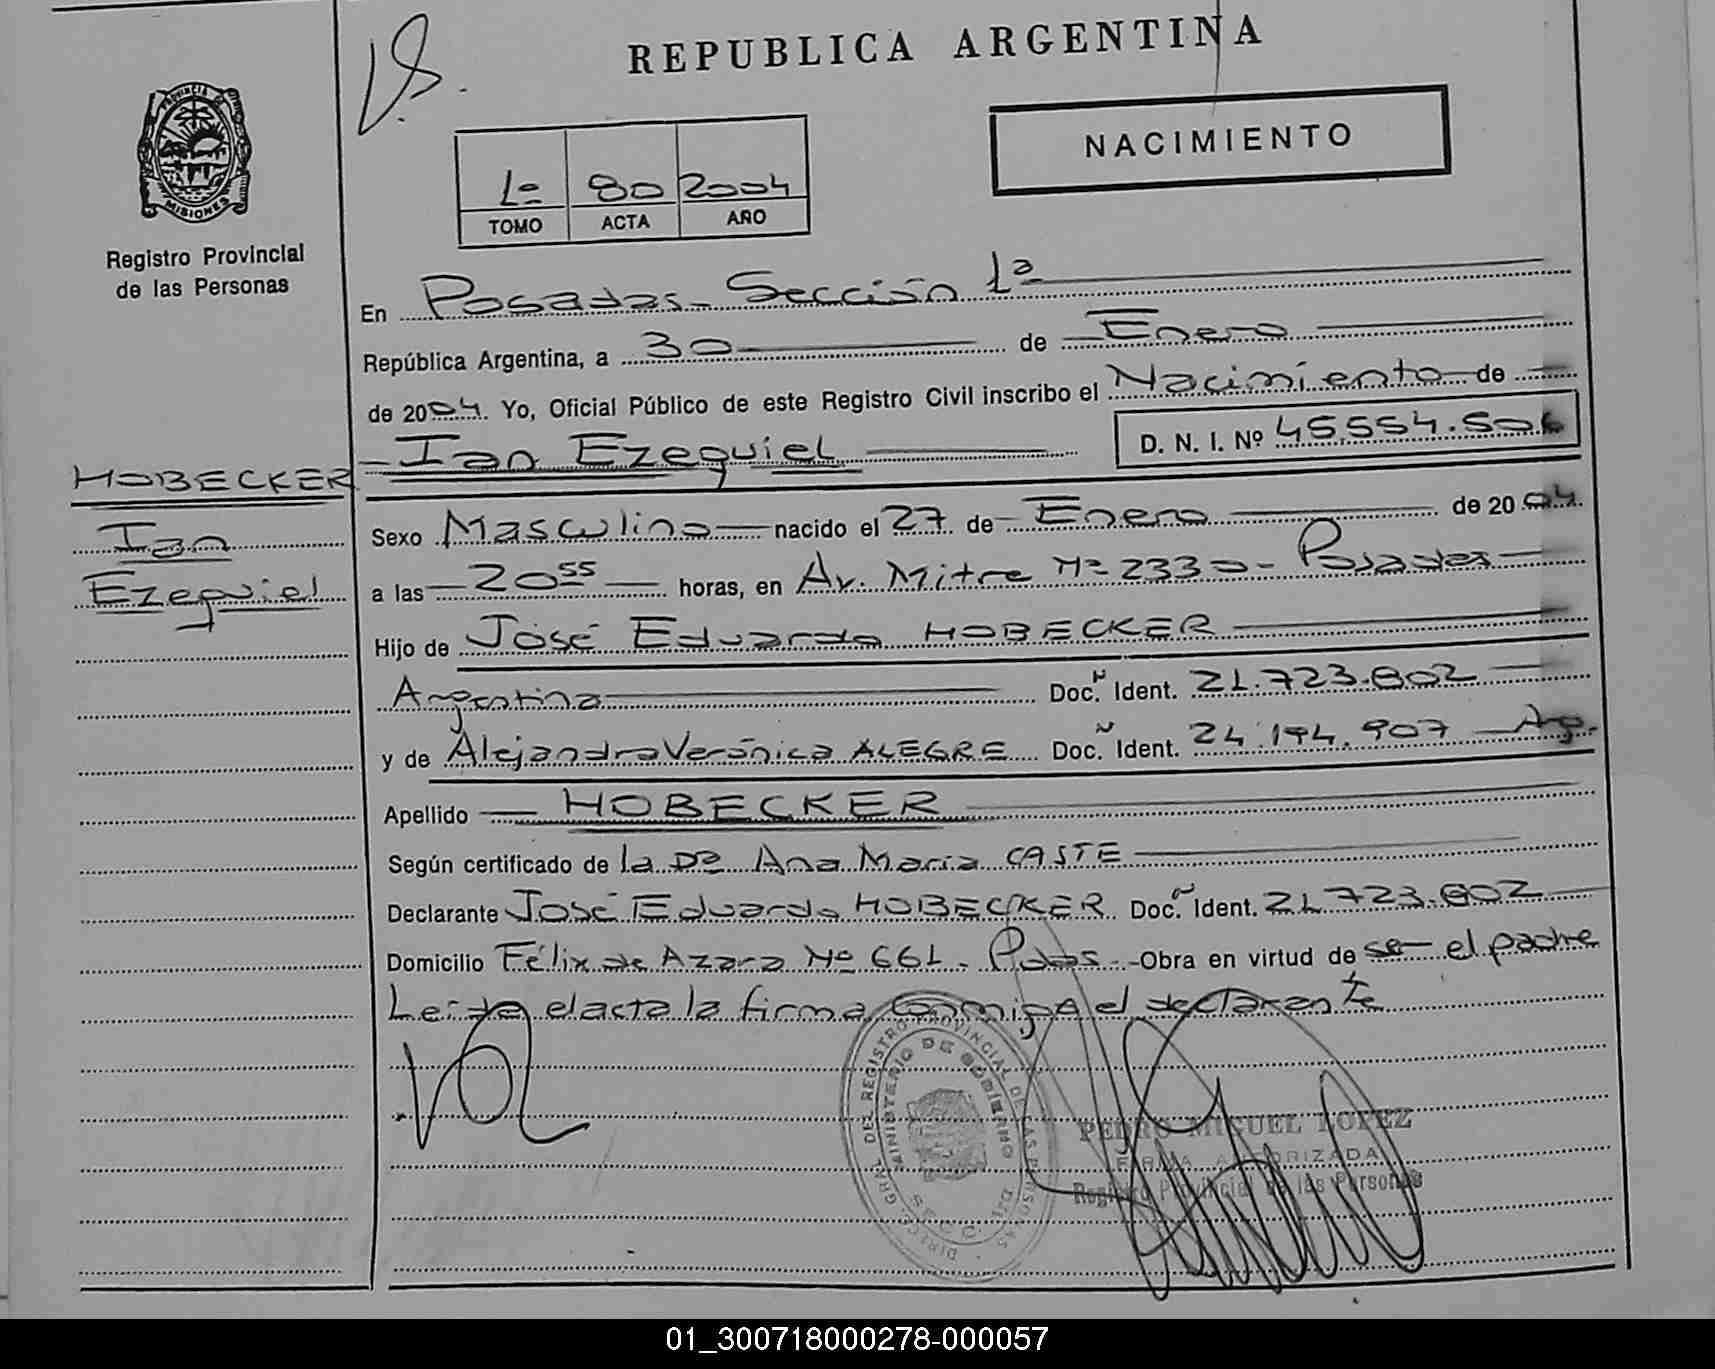 REPUBLICA ARGENTINA
NACIMIENTO
PROVINCIA DE
MISIONES
Registro Provincial
de las Personas
1º 80 2004
TOMO ACTA AÑO
En Posadas - Sección 1ª
República Argentina, a 30 de Enero
de 2004. Yo, Oficial Público de este Registro Civil inscribo el Nacimiento de
Ian Ezequiel D. N. I. Nº 45.554.506
HOBECKER
Ian
Ezequiel
Sexo Masculino nacido el 27 de Enero de 2004.
a las 20 55 horas, en Av. Mitre Nº 2330 - Posadas
Hijo de José Eduardo HOBECKER
Argentina Doc. Ident. 21.723.802
y de Alejandra Verónica ALEGRE Doc. Ident. 24.194.907 Arg.
Apellido HOBECKER
Según certificado de la Dª Ana María CASTE
Declarante José Eduardo HOBECKER Doc. Ident. 21.723.802
Domicilio Félix de Azara Nº 661 - Pdas - Obra en virtud de ser el padre
Leída el acta la firma conmigo el declarante
DIREC. GRAL. DEL REGISTRO PROVINCIAL DE LAS PERSONAS
MINISTERIO DE GOBIERNO
PEDRO MIGUEL LOPEZ
FIRMA AUTORIZADA
Registro Provincial de las Personas
01_300718000278-000057